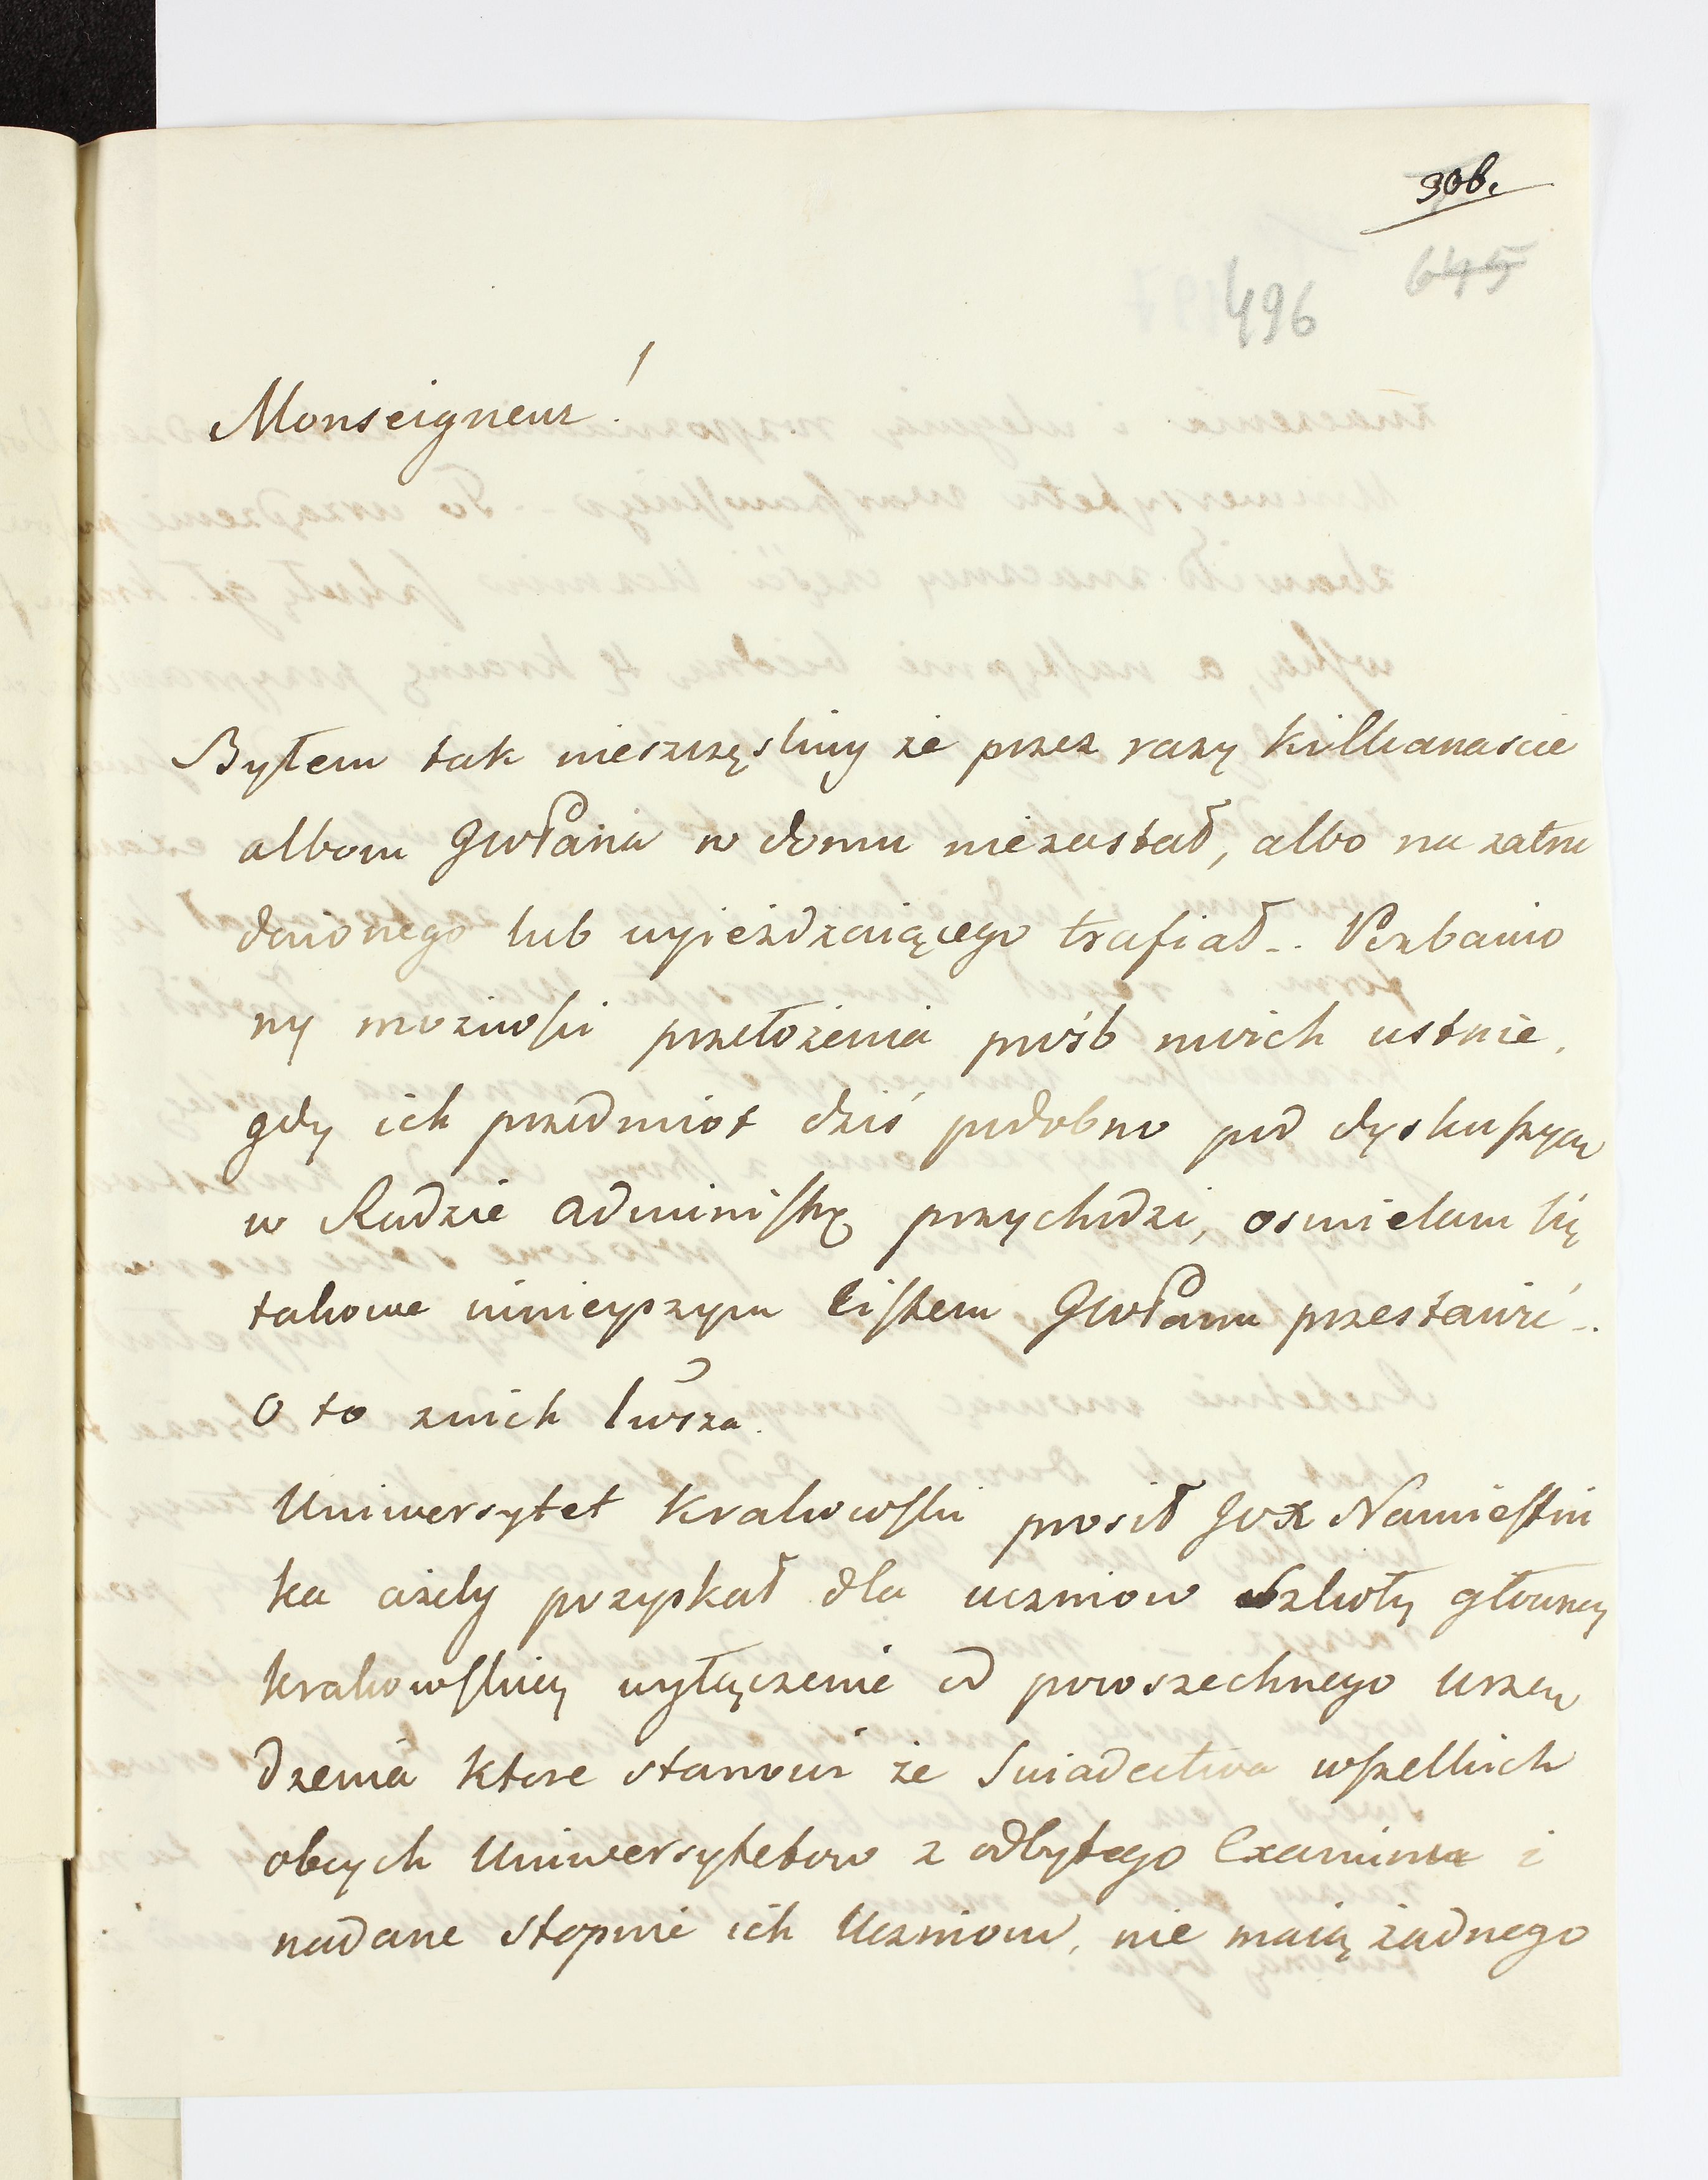 306.
645
496
Monseigneur!
Byłem tak nieszczęsliwy że przez razy kilkanascie
albom JWPana w domu niezastał, albo na zatru
dnionego lub wyieżdzaiącego trafiał.. Pozbawio
ny możności przełożenia próśb moich ustnie,
gdy ich przedmiot dziś podobno pod dyskussyą
w Radzie administr przychodzi, osmielam się
takowe ninieyszym listem JWPanu przestawić..
O to znich 1wsza.
Uniwersytet Krakowski prosił JOX Namiestni
ka ażeby pozyskał dla uczniow Szkoły główney
krakowskiey wyłączenie od powszechnego urzą
dzenia ktore stanowi że Swiadectwa wszelkich
obcych Uniwersytetow z odbytego Examinu i
nadane stopnie ich Uczniom, nie maią żadnego